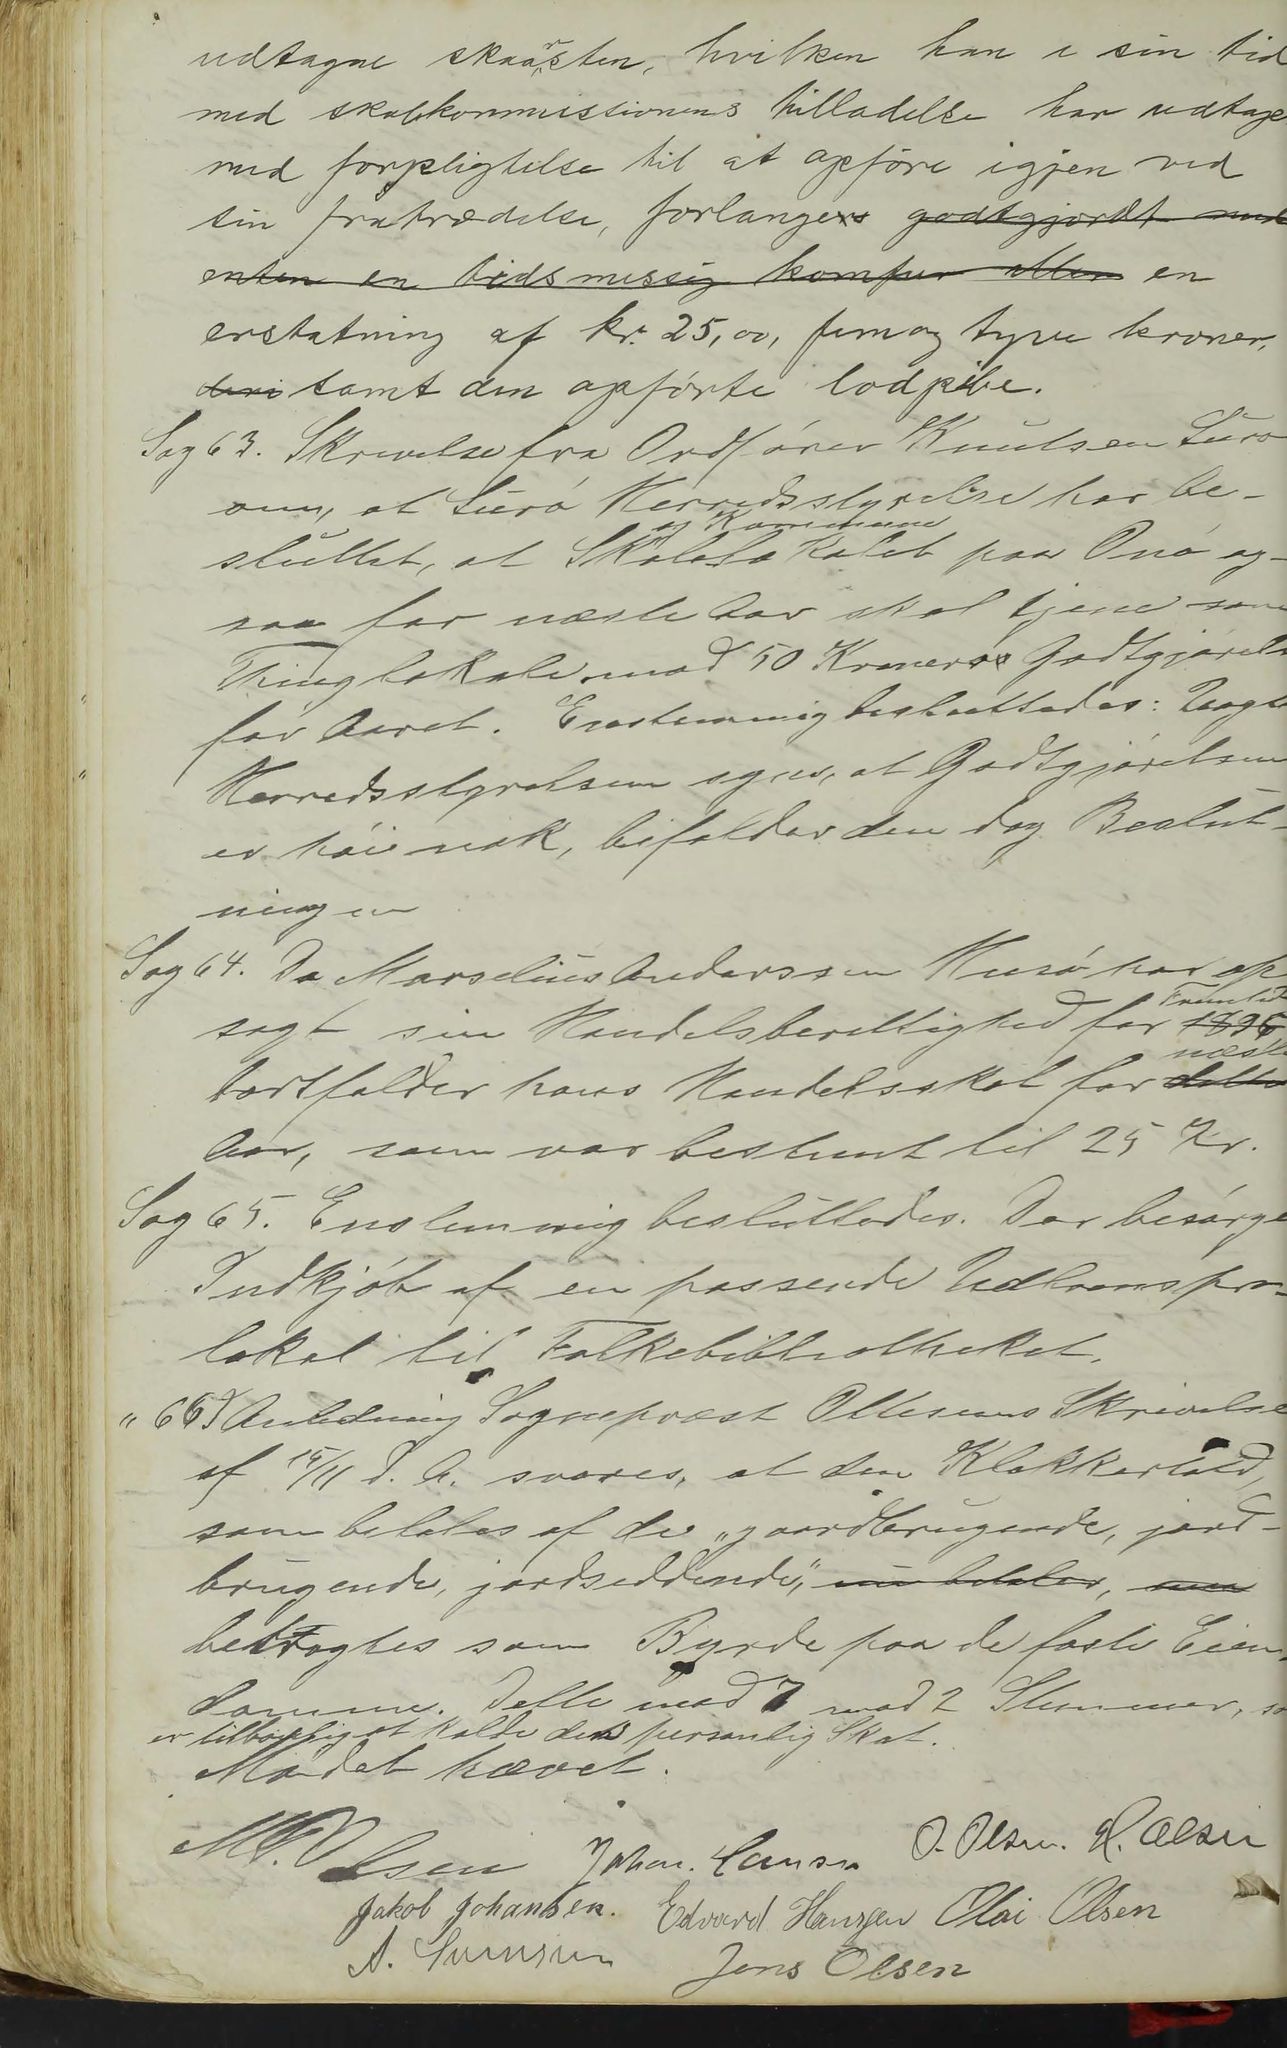 udtagne skaarsten, hvilken han i sin tid
med skolekommissionens tilladelse har udtage
med forpligtelse til at opföre igjen ved
sin fratrædelse, forlanges godtgjordt med
enten en tidsmessig komfur eller en
erstatning af kr. 25,00, fem og tyve kroner,
samt den opförte lodpibe.
Sag 63. Skrivelse fra Ordförer Knutsen Lurö
om, at Lurö Herredsstyrelse har be-
og Kommune
sluttet, at Skolelokalet paa Onö og-
saa for næste Aar skal tjene som
Thinglokale mod 50 Kroners Godtgjörelse
for Aaret. Enstemmig besluttedes: Uagtet
Herredsstyrelsen synes, at Godtgjörelsen
er höi nok, bifalder den dog Beslut-
ningen
Sag 64. Da Marselius Anderssen Husö har op
Fremtid
sagt sin Handelsberettighed for 1896
næste
bortfalder hans Handelsskat for dette
Aar, som var bestemt til 25 Kr.
Sag 65. Enstemmig besluttedes. Der besörge
Indkjöb af en passende Udlaanspro-
tokol til Folkebibliotheket.
" 66 I Anledning Sogneprest Ottesens Skrivelse
af 15/11 d. A. svares, at den Klokkertold,
som betales af de "gaardbrugende, jord-
brugende, jordseddende", betales,
betragtes som Byrde paa de faste Eien-
domme. Dette mod 7 mod 2 Stemmer, so
er tilböielig at kalde den personlig Skat.
Mödet hævet.
M. Olsen Johan. Hansen O. Olsen. H. Olsen
Jakob Johansen. Edvard Hansen Olai Olsen
A. Jens Olsen